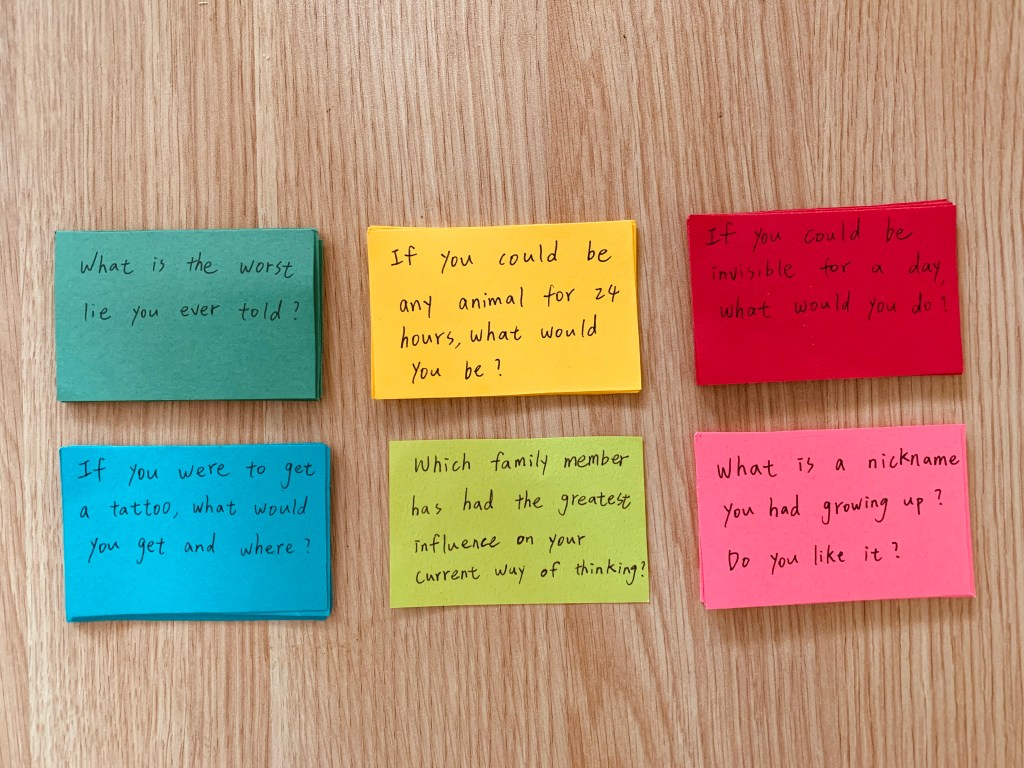 What is the worst
lie you ever told?
If you could be
any animal for 24
hours, what would
you be?
If you could be
invisible for a day,
what would you do?
If you were to get
a tattoo, what would
you get and where?
Which family member
has had the greatest
influence on your
current way of thinking?
What is a nickname
you had growing up?
Do you like it?